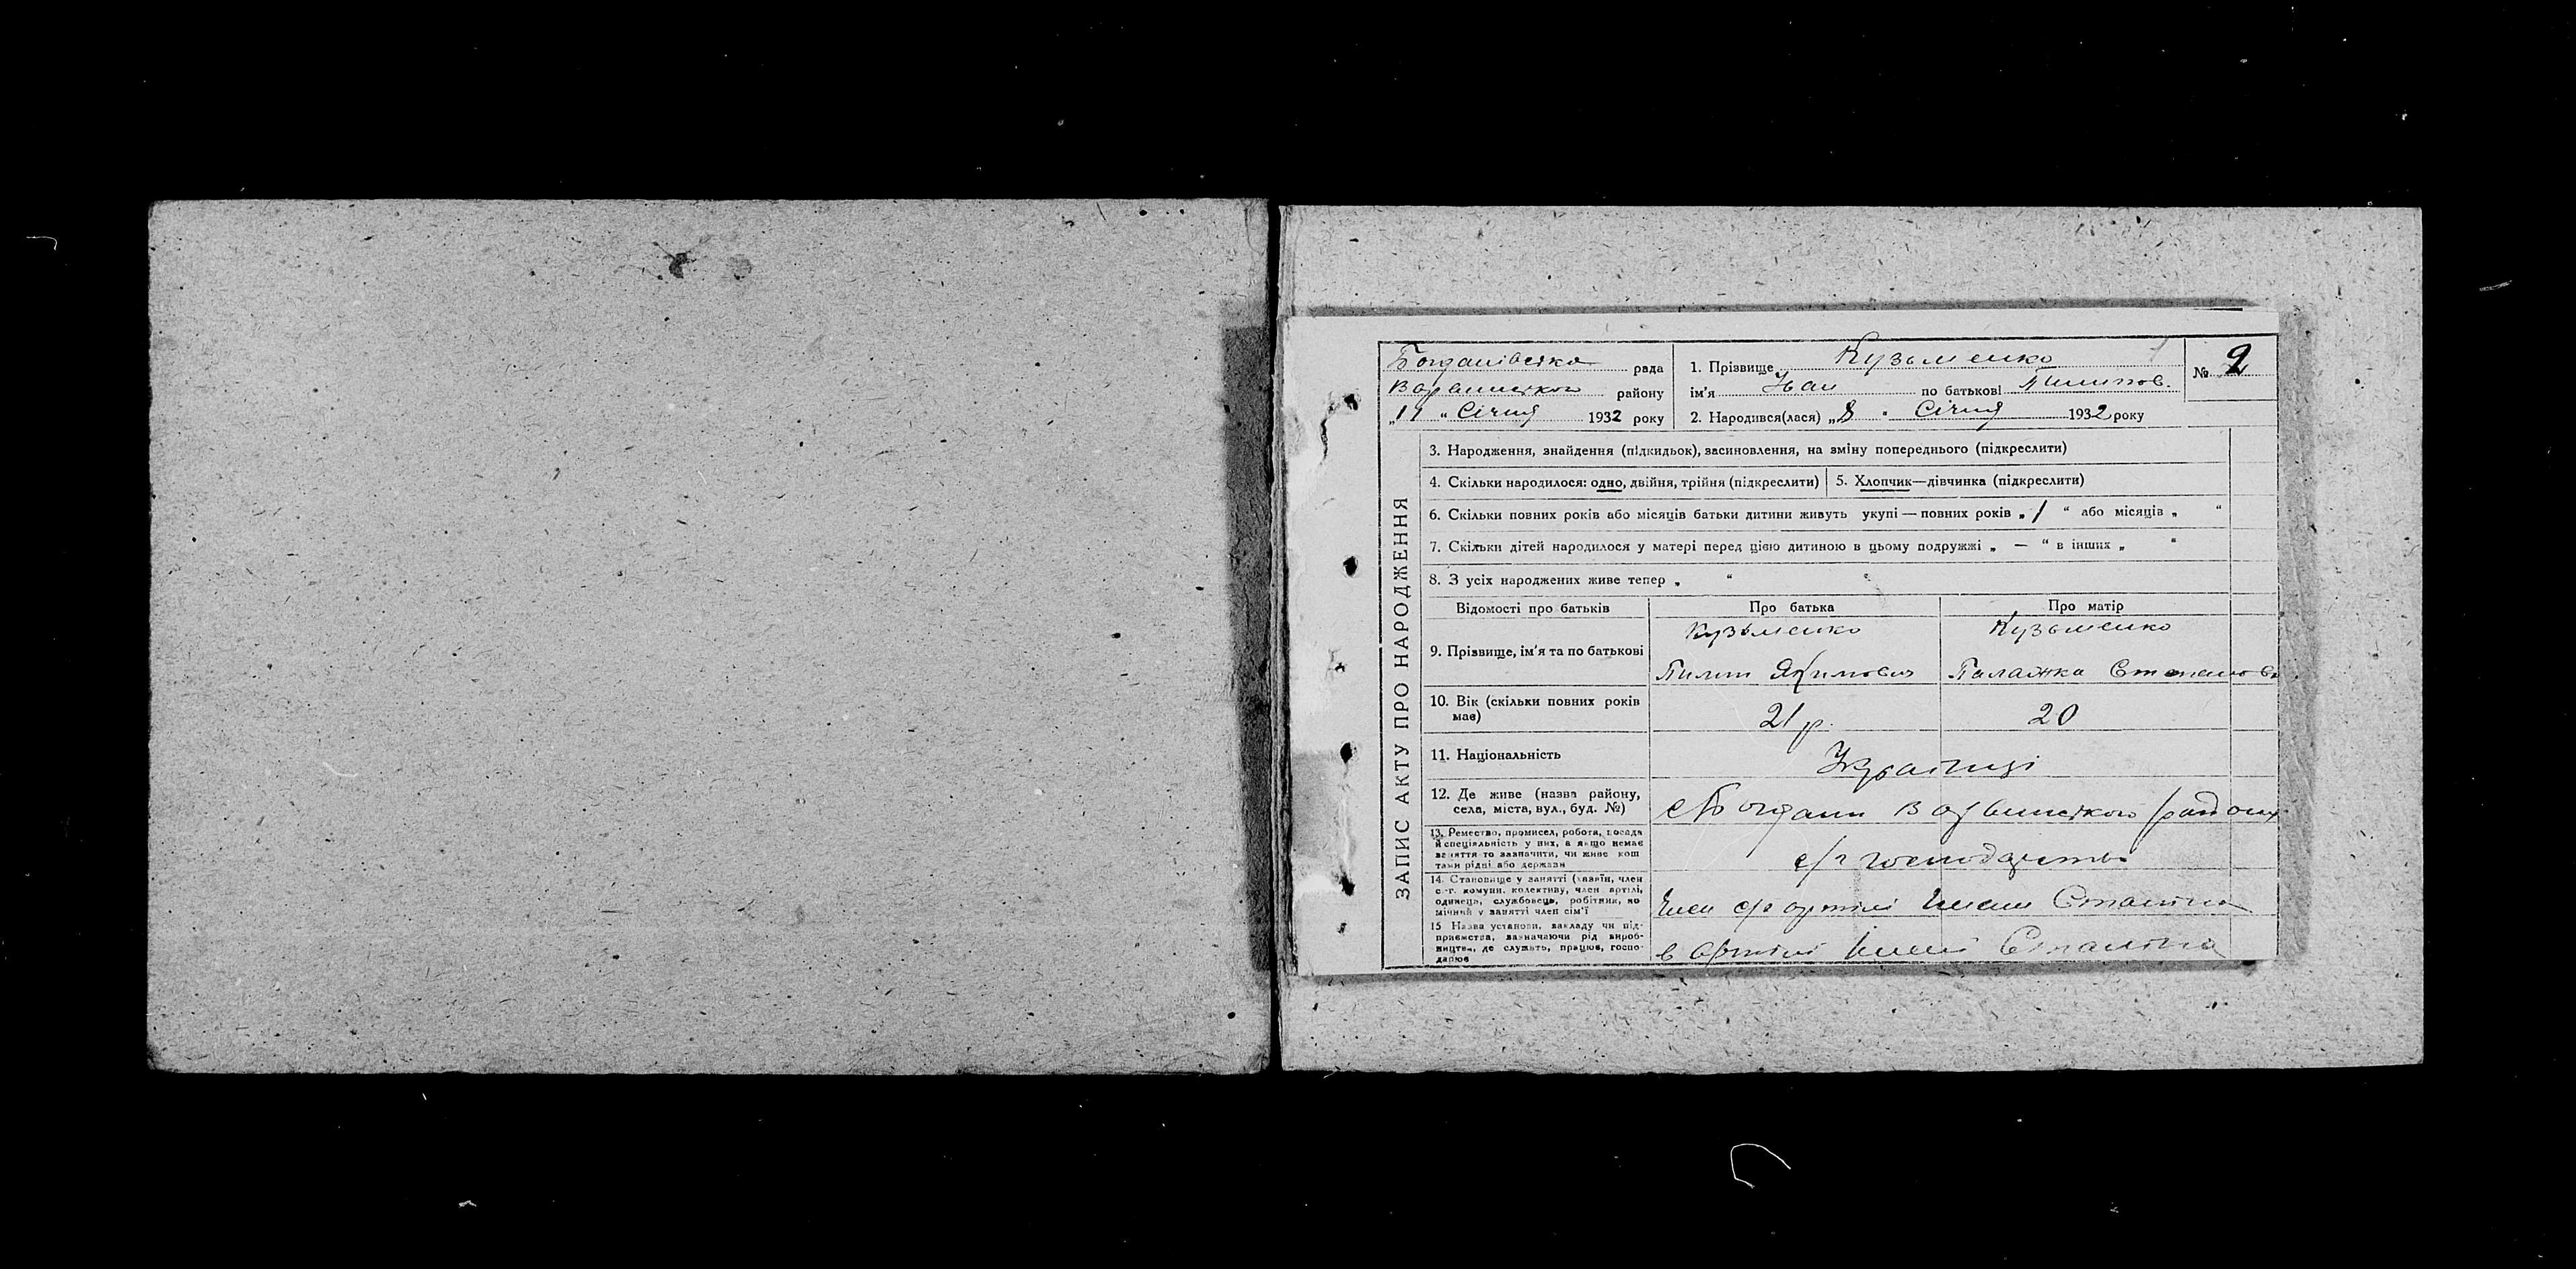 Богданівська рада
Варвинського району
„11 “ Січня 1932 року
1. Прізвище Кузьменко
ім'я Іван по батькові Пилипов.
2. Народився(лася) „8 “ Січня 1932 року
№ 2
ЗАПИС АКТУ ПРО НАРОДЖЕННЯ
3. Народження, знайдення (підкидьок), засиновлення, на зміну попереднього (підкреслити)
4. Скільки народилося: одно, двійня, трійня (підкреслити) 5. Хлопчик—дівчинка (підкреслити)
6. Скільки повних років або місяців батьки дитини живуть укупі — повних років „ 1 “ або місяців „ “
7. Скільки дітей народилося у матері перед цією дитиною в цьому подружжі „ — “ в інших „ “
8. З усіх народжених живе тепер „ “
Відомості про батьків Про батька Про матір
9. Прізвище, ім'я та по батькові
Кузьменко
Пилип Якимович
Кузьменко
Палажка Степанов
10. Вік (скільки повних років
має)
21 р.
20
11. Національність
Українці
12. Де живе (назва району,
села, міста, вул., буд. №)
с Богдани Варвинського району
13. Ремество, промисел, робота, посада
й спеціяльність у них, а якщо немає
заняття то зазначити, чи живе кош
тами рідні або держави
с/г господарство
14. Становище у занятті (хазяїн, член
с.-г. комуни, колективу, член артілі,
одинець, службовець, робітник, по
мічний у занятті член сім'ї
Член с/г артілі імени Сталіна
15 Назва установи, закладу чи під-
приємства, зазначаючи рід вироб-
ництва, де служить, працює, госпо-
дарює
в артілі імені Сталіна